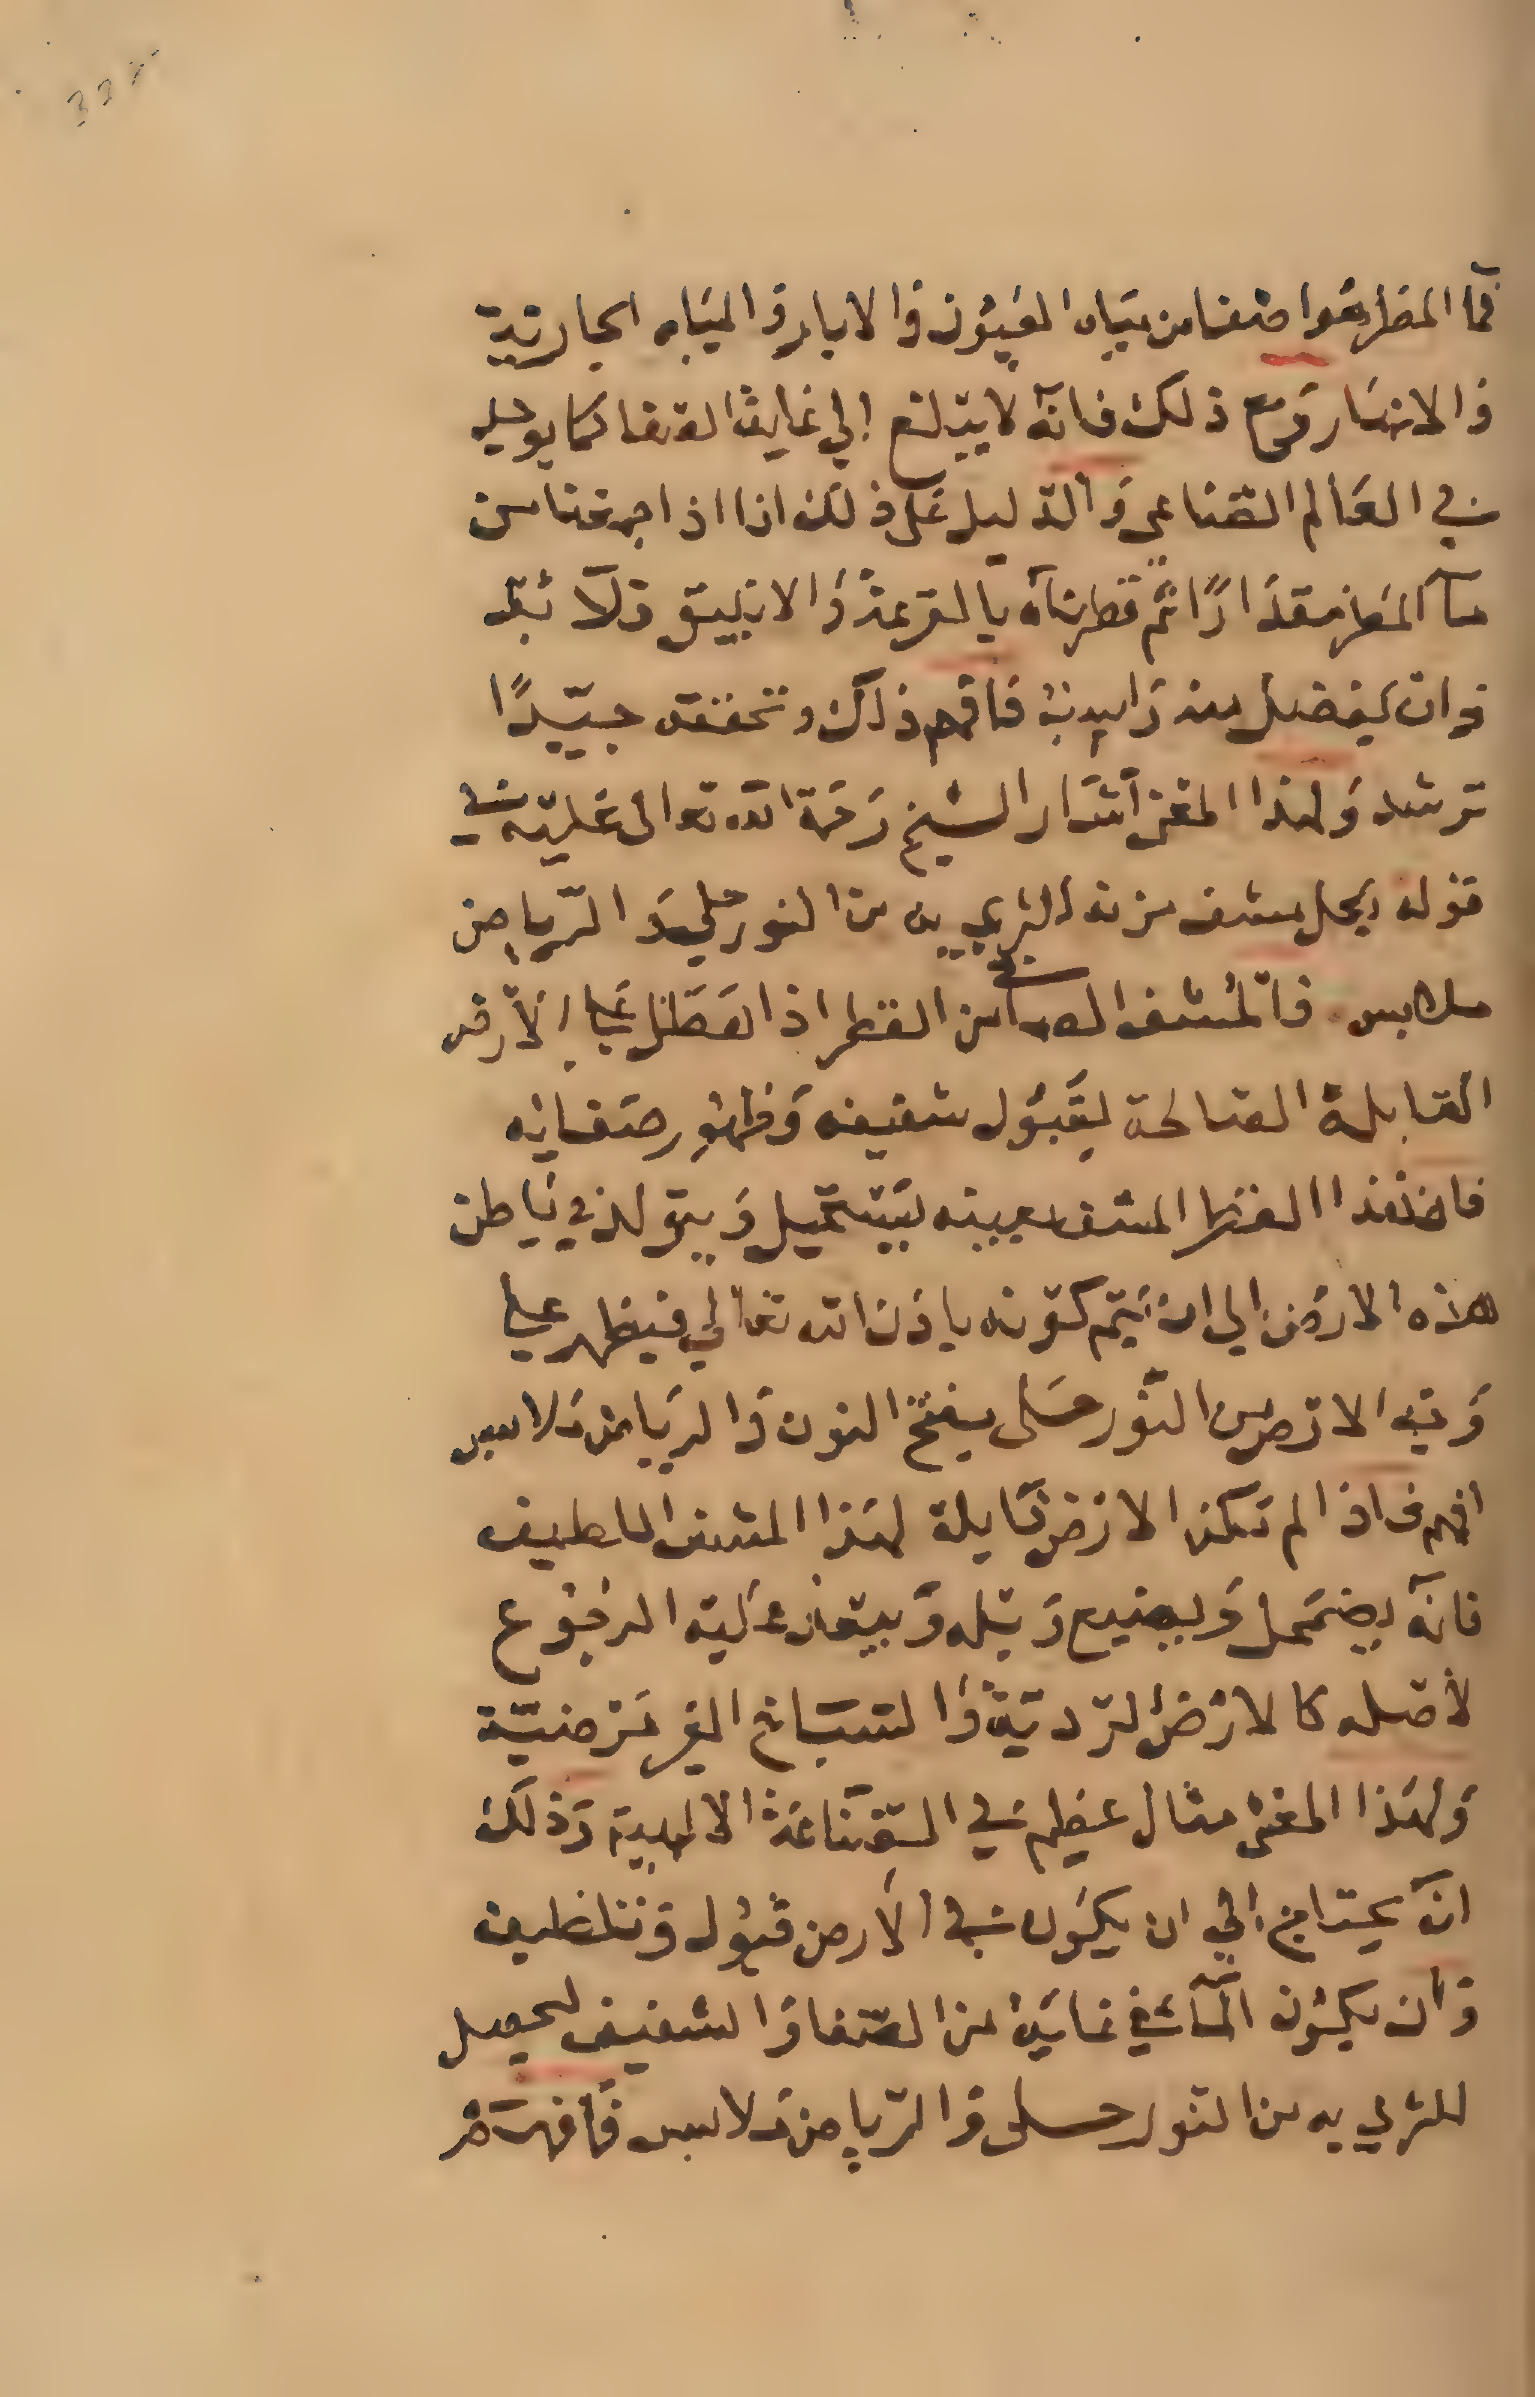 فما المطر هوا صفا من مياه العيون والابار والمياه الجارية
والانهار ومع ذلك فانه لا يبلغ الي غاية الصفا كما يوجد
في العالم الصناعي والدليل على ذلك انا اذا جمعنا من
ماء المطر مقدارًا ثم قطرناه بالقرعة والانبيق فلا بد
وان يفضل منه ارضية فافهم ذلك وتحققه جيّدًا
ترشد ولهذا المعنى اشار الشيخ رحمة الله تعالى عليه في
قوله بكل مشف مزنه لثري به من النور حلي والرياض
ملابس فالمشف الصافي من القطر اذا هطل علي الارض
القابلة الصالحة لقبول شفيفه وظهور صفايه
فان هذا القطر المشف بعينه يستحيل ويتولد في باطن
هذه الارض الي ان يتم كونه باذن الله تعالي فيظهر علي
وجه الارض من النور حلى بفتح النون والرياض ملابس
افهم فاذا لم تكن الارض قابلة لهذا المشف اللطيف
فانه يضمحل ويضيع وبله ويتعذر عليه الرجوع
لاصله كالارض الرديّة والسباخ الغير مرضيّة
ولهذا المعنى مثال عظيم في الصناعة الالهية وذلك
انه يحتاج الي ان يكون في الارض قبول وتلطيف
وان يكون الماء في غاية من الصفا والشفيف ليحصل
للثري به من النور حلى والرياض ملابس فافهم